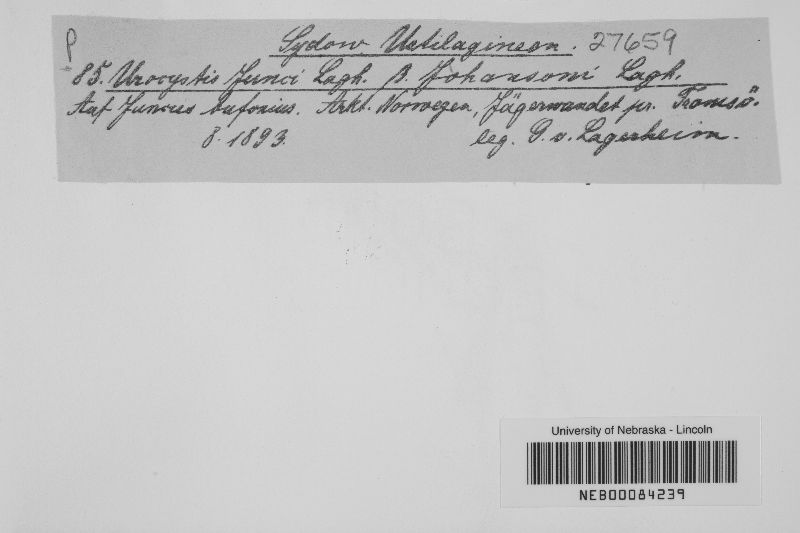 P
Sydow Ustilagineen. 27659
85. Urocystis Junci Lagh. β. Johansoni Lagh.
Auf Juncus bufonius. Arkt. Norwegen, Jägervandet pr. Tromsö.
8. 1893. leg. G. v. Lagerheim.
University of Nebraska - Lincoln
NEB00084239